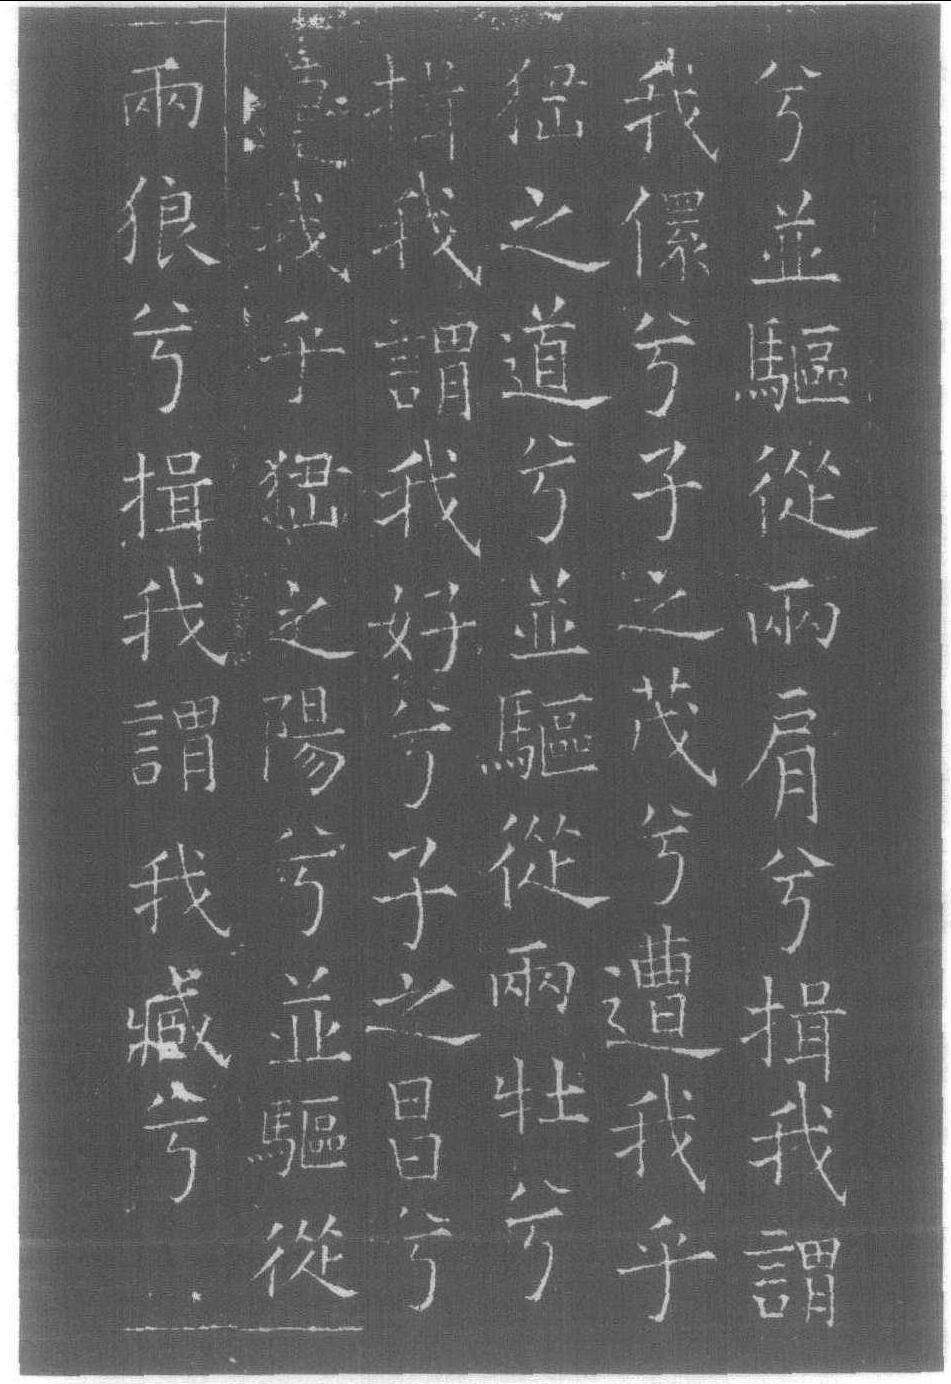 兮並驅從兩肩兮揖我謂
我儇兮子之茂兮遭我乎
峱之道兮並驅從兩牡兮
揖我謂我好兮子之昌兮
遭我乎峱之陽兮並驅從
兩狼兮揖我謂我臧兮